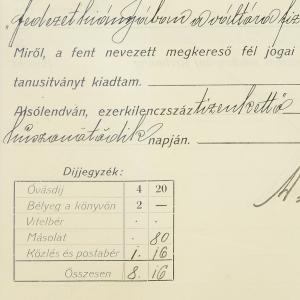 "fedezet hiányjában a váltóra fiz
Miről, a fent nevezett megkereső fél jogai
tanusitványt kiadtam.
Alsólendván, ezerkilencszáztizenkettő
huszonötödik napján.
Dijjegyzék:
Óvásdij 4 20
Bélyeg a könyvön 2 —
Vitelbér . .
Másolat . 80
Közlés és postabér 1. 16
Összesen 8. 16